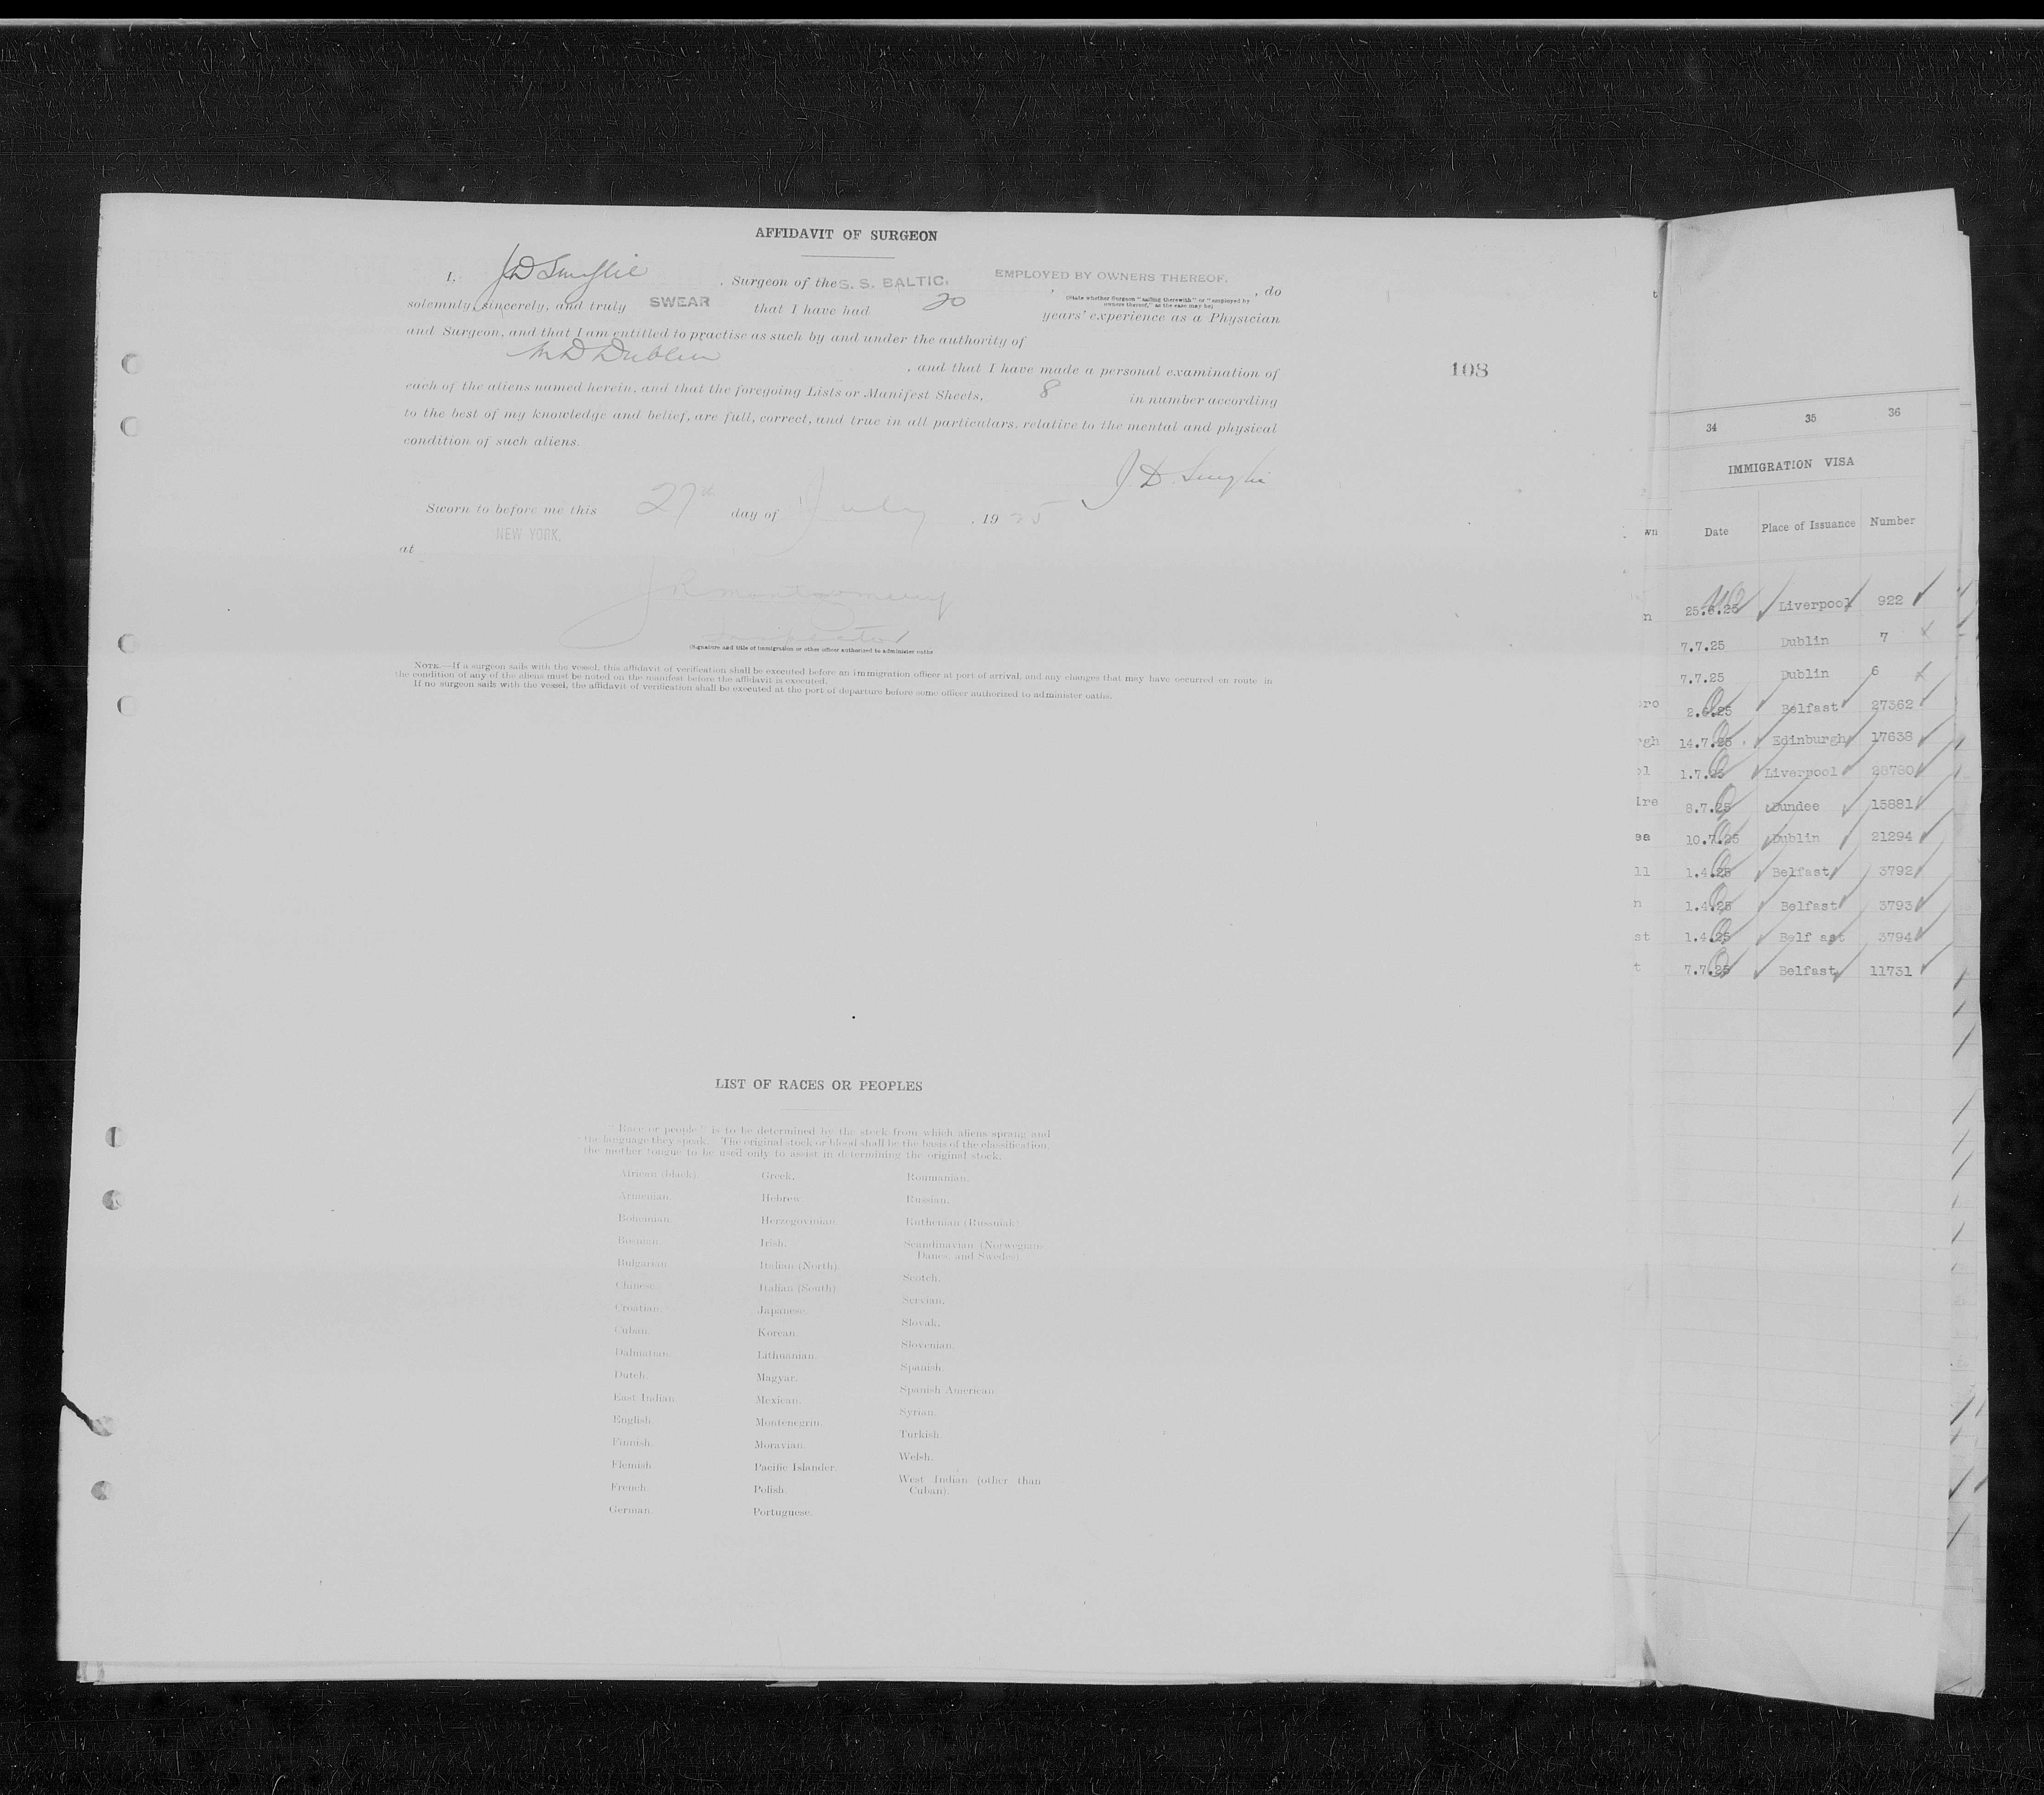 AFFIDAVIT OF SURGEON
I, J D Smylie, Surgeon of the S. S. BALTIC, EMPLOYED BY OWNERS THEREOF, do
(State whether Surgeon "sailing therewith" or "employed by
owners thereof," as the case may be)
solemnly, sincerely, and truly SWEAR that I have had 20 years' experience as a Physician
and Surgeon, and that I am entitled to practise as such by and under the authority of
M D Dublin, and that I have made a personal examination of
each of the aliens named herein, and that the foregoing Lists or Manifest Sheets, 8 in number according
to the best of my knowledge and belief, are full, correct, and true in all particulars, relative to the mental and physical
condition of such aliens.
J D Smylie
Sworn to before me this 27th day of July, 1925
NEW YORK,
at
J R Montgomery
Inspector
(Signature and title of immigration or other officer authorized to administer oaths
NOTE.—If a surgeon sails with the vessel, this affidavit of verification shall be executed before an immigration officer at port of arrival, and any changes that may have occurred en route in
the condition of any of the aliens must be noted on the manifest before the affidavit is executed.
If no surgeon sails with the vessel, the affidavit of verification shall be executed at the port of departure before some officer authorized to administer oaths.
108
LIST OF RACES OR PEOPLES
"Race or people" is to be determined by the stock from which aliens sprang and
the language they speak. The original stock or blood shall be the basis of the classification,
the mother tongue to be used only to assist in determining the original stock.
African (black).
Armenian.
Bohemian.
Bosnian.
Bulgarian.
Chinese.
Croatian.
Cuban.
Dalmatian.
Dutch.
East Indian.
English.
Finnish.
Flemish.
French.
German.
Greek.
Hebrew.
Herzegovinian.
Irish.
Italian (North).
Italian (South).
Japanese.
Korean.
Lithuanian.
Magyar.
Mexican.
Montenegrin.
Moravian.
Pacific Islander.
Polish.
Portuguese.
Roumanian.
Russian.
Ruthenian (Russniak).
Scandinavian (Norwegians,
Danes, and Swedes).
Scotch.
Servian.
Slovak.
Slovenian.
Spanish.
Spanish American.
Syrian.
Turkish.
Welsh.
West Indian (other than
Cuban).
34 35 36
IMMIGRATION VISA
wn Date Place of Issuance Number
n 25.6.25 Liverpool 922
7.7.25 Dublin 7
7.7.25 Dublin 6
oro 2.6.25 Belfast 27362
rgh 14.7.25 Edinburgh 17638
ol 1.7.25 Liverpool 28780
ire 8.7.25 Dundee 15881
ee 10.7.25 Dublin 21294
ll 1.4.25 Belfast 3792
n 1.4.25 Belfast 3793
st 1.4.25 Belf ast 3794
t 7.7.25 Belfast 11731